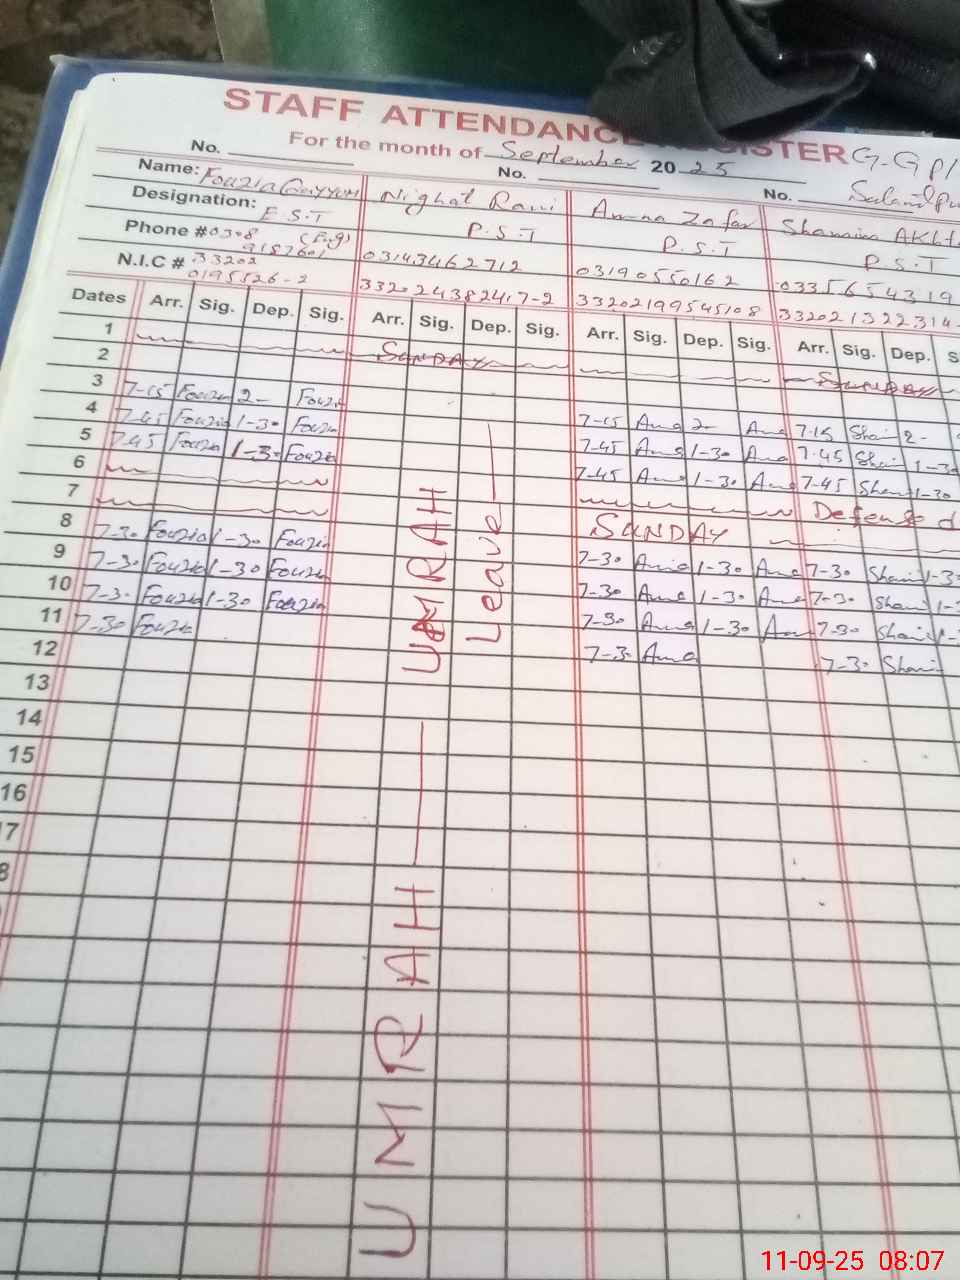 STAFF ATTENDANCE REGISTER G.G.P/
For the month of September 2025
No. No. No.
Name: Fouzia Qayyum Nighat Rani Amna Zafar Shamim Akht
Designation: E.S.T P.S.T P.S.T P.S.T
Phone # 0308 9187601 03143462712 03190550162 0335654319
N.I.C # 33202 0195526-2 33202199545108 332021322314
Dates Arr. Sig. Dep. Sig. Arr. Sig. Dep. Sig. Arr. Sig. Dep. Sig. Arr. Sig. Dep. S
1
2 SUNDAY SUNDAY
3 7-15 Fouzia 2- Fouzia 7-15 Amna 2- Amna 7.15 Sham 2-
4 7-45 Fouzia 1-30 Fouzia 7-45 Amna 1-30 Amna 7.45 Sham 1-30
5 7-45 Fouzia 1-30 Fouzia 7-45 Amna 1-30 Amna 7-45 Sham 1-30
6 Defense d
7 SUNDAY
8 7-30 Fouzia 1-30 Fouzia 7-30 Amna 1-30 Amna 7-30 Sham 1-3
9 7-30 Fouzia 1-30 Fouzia 7-30 Amna 1-30 Amna 7-30 Sham 1-
10 7-30 Fouzia 1-30 Fouzia 7-30 Amna 1-30 Amna 7-30 Sham 1-
11 7-30 Fouzia 7-30 Amna 7-30 Sham
12
13
14
15
16
17
8
UMRAH
Leave
UMRAH
11-09-25 08:07